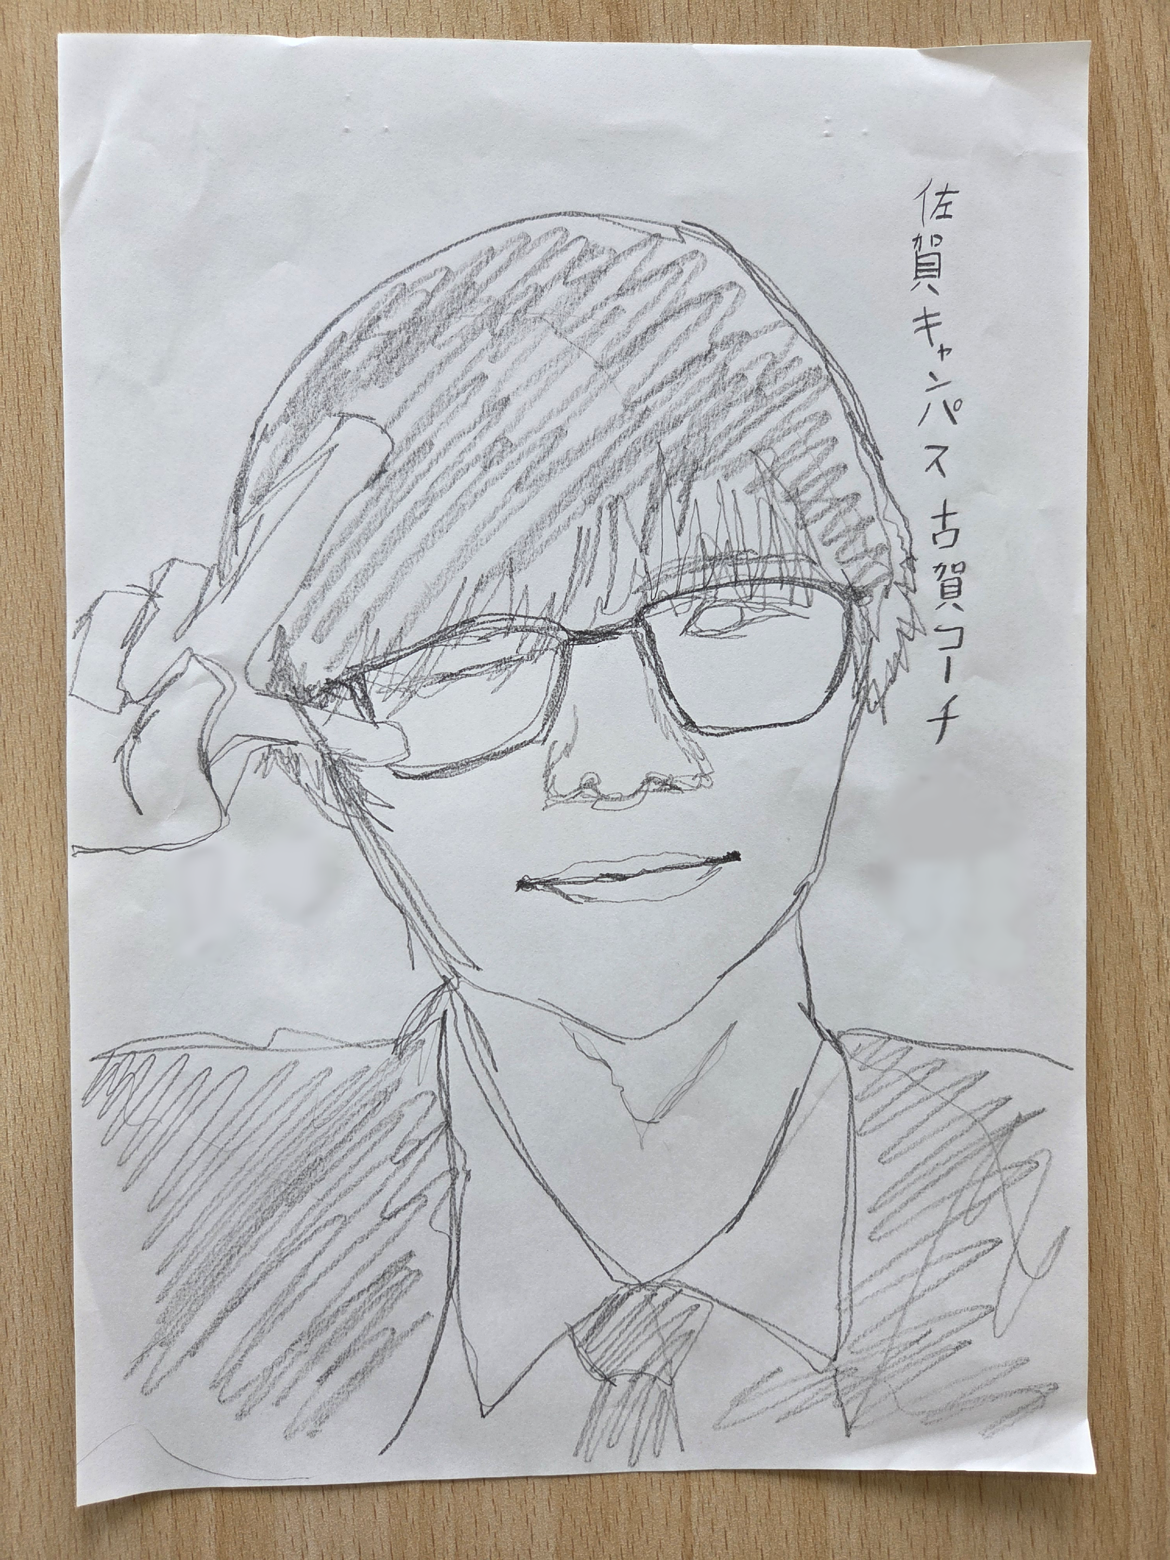 佐賀キャンパス 古賀コーチ